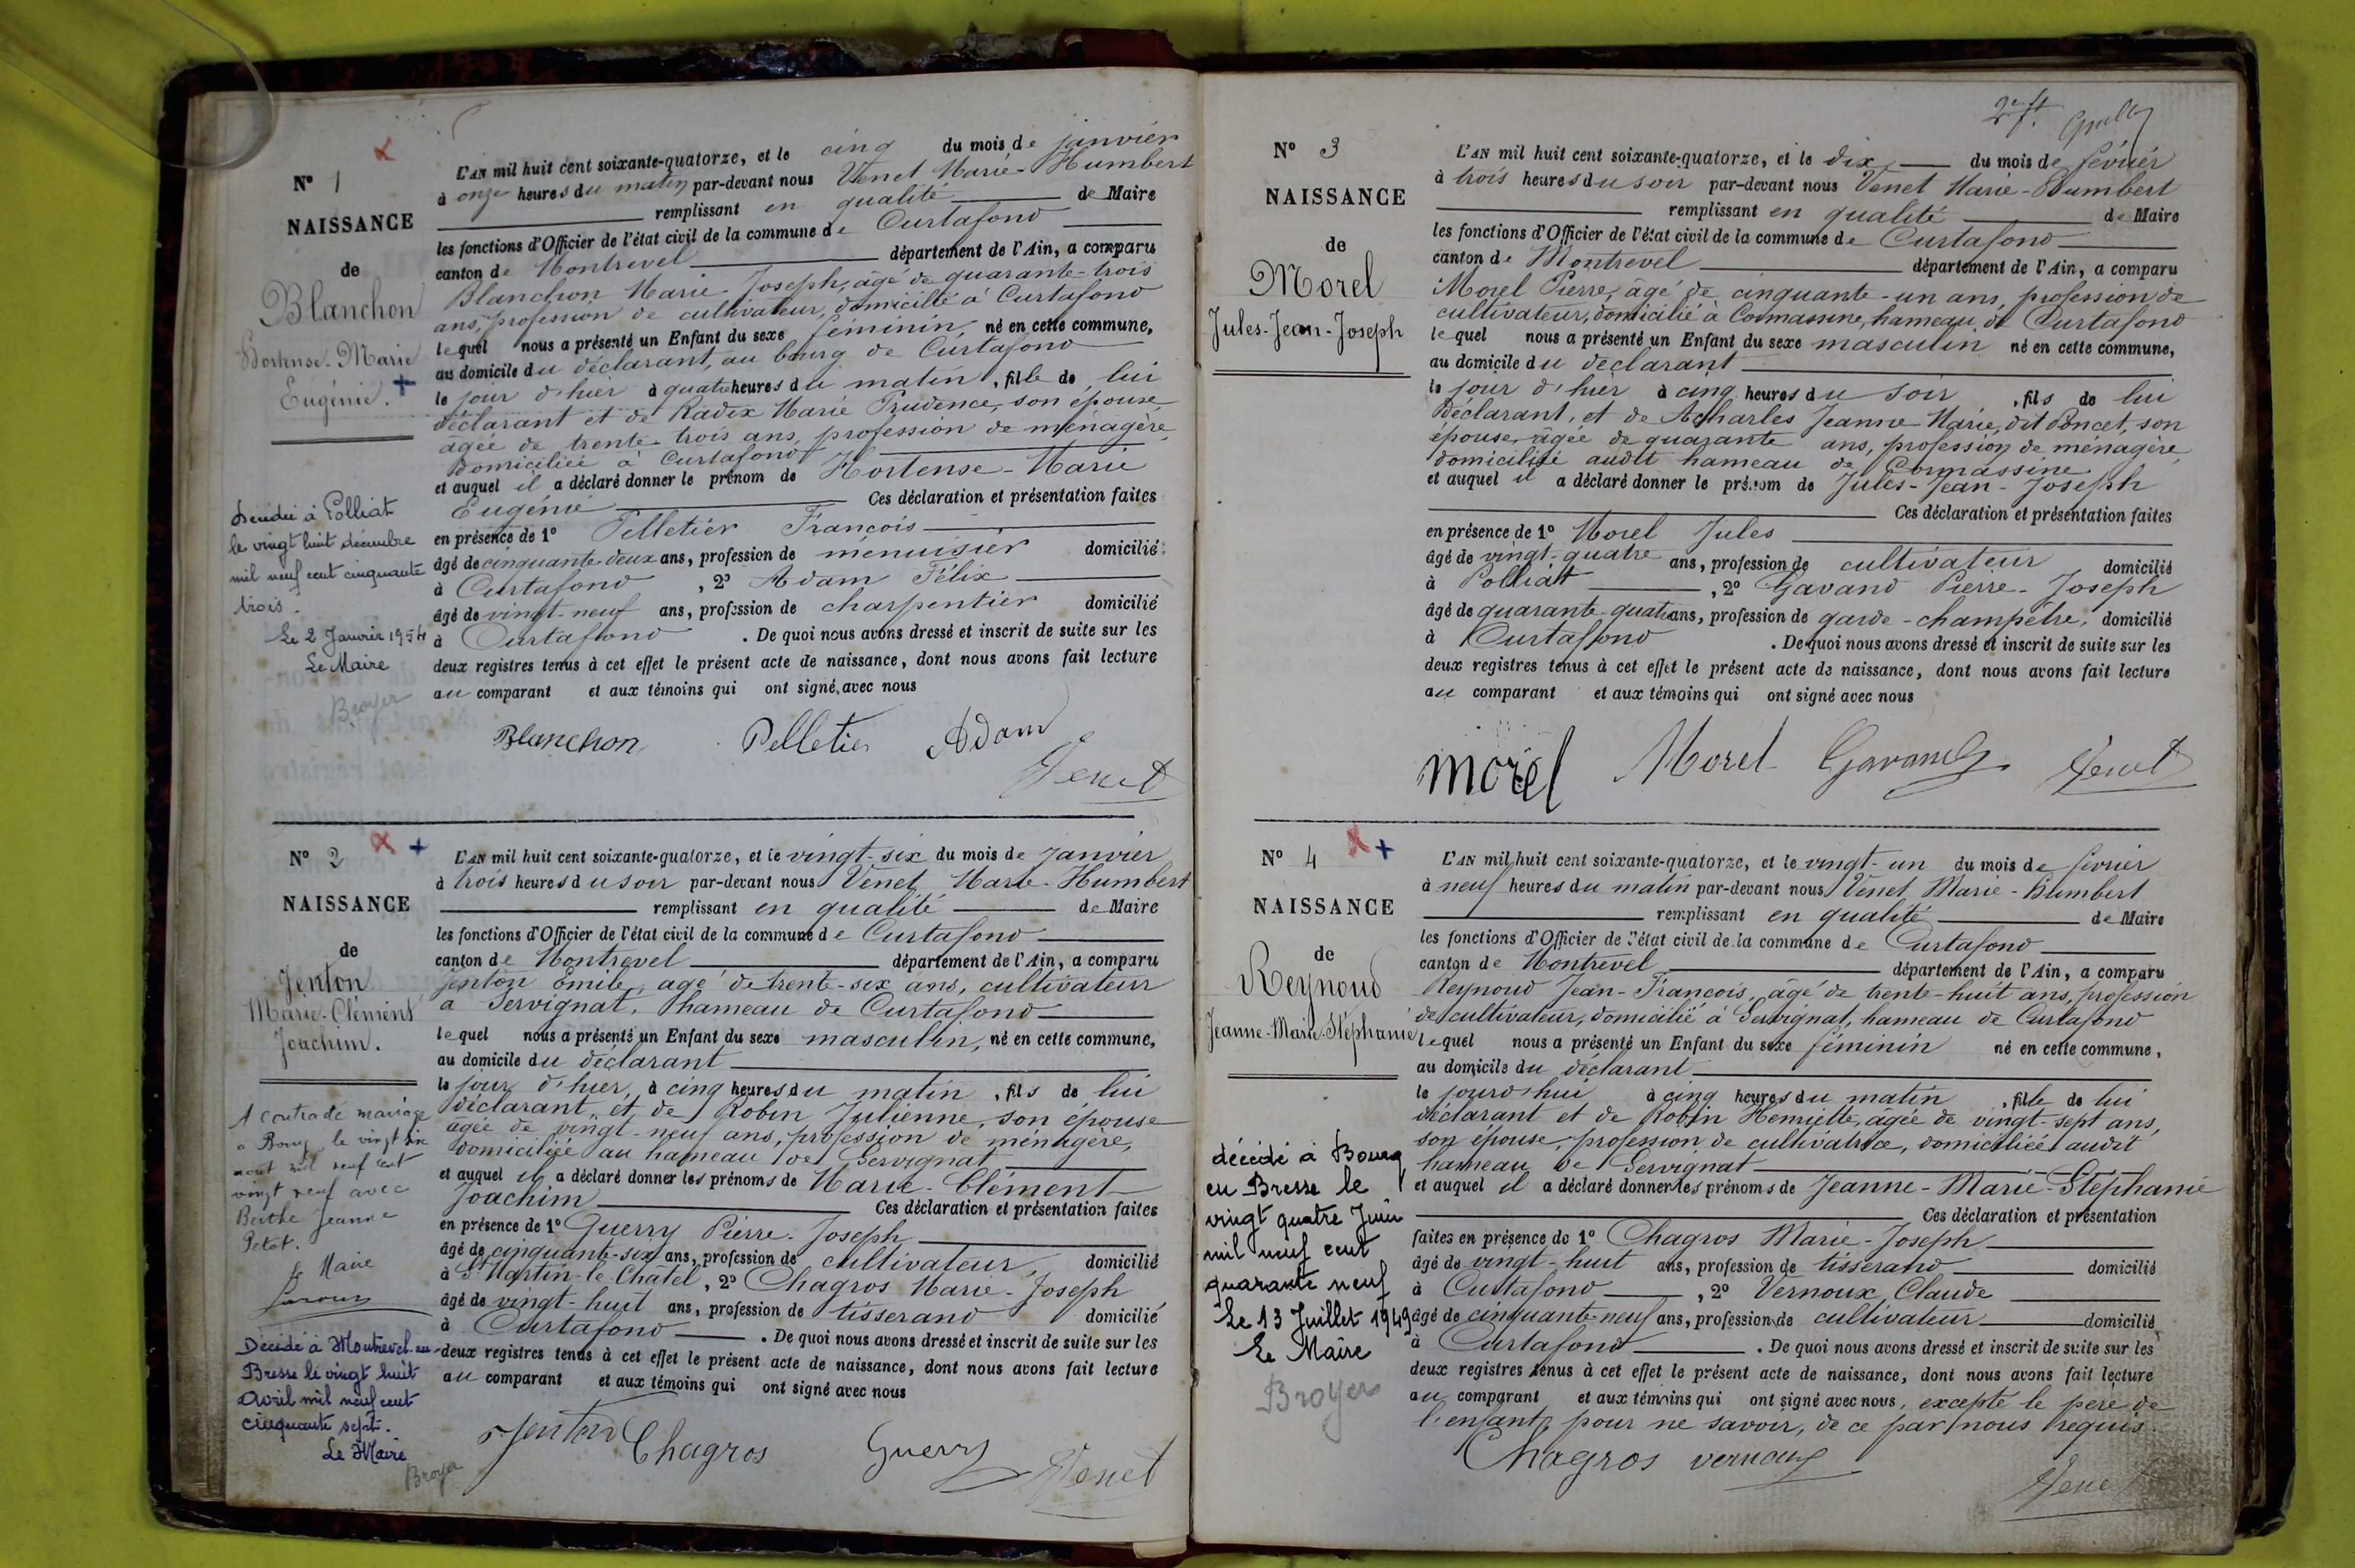 N° 1
NAISSANCE
de
Blanchon
Hortense-Marie
Eugénie.
L'AN mil huit cent soixante-quatorze, et le cinq du mois de janvier
à onze heures du matin par-devant nous Venet Marie-Humbert
remplissant en qualité de Maire
les fonctions d'Officier de l'état civil de la commune de Curtafond
canton de Montrevel département de l'Ain, a comparu
Blanchon Marie Joseph, âgé de quarante-trois
ans, profession de cultivateur, domicilié à Curtafond
lequel nous a présenté un Enfant du sexe féminin, né en cette commune,
au domicile du déclarant, au bourg de Curtafond
le jour d'hier à quatre heures du matin, fille de lui
déclarant et de Radix Marie Prudence, son épouse
âgée de trente-trois ans, profession de ménagère,
domiciliée à Curtafond
et auquel il a déclaré donner le prénom de Hortense-Marie
Eugénie Ces déclaration et présentation faites
en présence de 1° Pelletier François
âgé de cinquante-deux ans, profession de menuisier domicilié
à Curtafond, 2° Adam Félix
âgé de vingt-neuf ans, profession de charpentier domicilié
à Curtafond. De quoi nous avons dressé et inscrit de suite sur les
deux registres tenus à cet effet le présent acte de naissance, dont nous avons fait lecture
au comparant et aux témoins qui ont signé avec nous
Blanchon Pelletier Adam
Venet
Décédée à Polliat
le vingt huit décembre
mil neuf cent cinquante
trois.
Le 2 Janvier 1954
Le Maire
Broyer
N° 2
NAISSANCE
de
Jenton
Marie-Clément
Joachim.
L'AN mil huit cent soixante-quatorze, et le vingt-six du mois de janvier
à trois heures du soir par-devant nous Venet Marie-Humbert
remplissant en qualité de Maire
les fonctions d'Officier de l'état civil de la commune de Curtafond
canton de Montrevel département de l'Ain, a comparu
Jenton Emile, âgé de trente-six ans, cultivateur
à Servignat, hameau de Curtafond
lequel nous a présenté un Enfant du sexe masculin, né en cette commune,
au domicile du déclarant
le jour d'hier, à cinq heures du matin, fils de lui
déclarant, et de Robin Julienne, son épouse
âgée de vingt-neuf ans, profession de ménagère,
domiciliée au hameau de Servignat
et auquel il a déclaré donner les prénoms de Marie-Clément
Joachim Ces déclaration et présentation faites
en présence de 1° Guerry Pierre-Joseph
âgé de cinquante-six ans, profession de cultivateur, domicilié
à St Martin-le-Châtel, 2° Chagros Marie-Joseph
âgé de vingt-huit ans, profession de tisserand domicilié
à Curtafond. De quoi nous avons dressé et inscrit de suite sur les
deux registres tenus à cet effet le présent acte de naissance, dont nous avons fait lecture
au comparant et aux témoins qui ont signé avec nous
Jenton Chagros Guerry Venet
A contracté mariage
à Bourg le vingt six
août mil neuf cent
vingt neuf avec
Berthe Jeanne
Petot.
Le Maire
Décédé à Montrevel-en-
Bresse le vingt huit
Avril mil neuf cent
cinquante sept.
Le Maire
Broyer
N° 3
NAISSANCE
de
Morel
Jules-Jean-Joseph
L'AN mil huit cent soixante-quatorze, et le dix du mois de février
à trois heures du soir par-devant nous Venet Marie-Humbert
remplissant en qualité de Maire
les fonctions d'Officier de l'état civil de la commune de Curtafond
canton de Montrevel département de l'Ain, a comparu
Morel Pierre, âgé de cinquante-un ans, profession de
cultivateur, domicilié à Cormassine, hameau de Curtafond
lequel nous a présenté un Enfant du sexe masculin né en cette commune,
au domicile du déclarant
le jour d'hier à cinq heures du soir, fils de lui
déclarant, et de Acharles Jeanne Marie, dit Poncet, son
épouse, âgée de quarante ans, profession de ménagère,
domiciliée audit hameau de Cormassine
et auquel il a déclaré donner le prénom de Jules-Jean-Joseph
Ces déclaration et présentation faites
en présence de 1° Morel Jules
âgé de vingt-quatre ans, profession de cultivateur domicilié
à Polliat, 2° Gavand Pierre-Joseph
âgé de quarante-quatre ans, profession de garde-champêtre, domicilié
à Curtafond. De quoi nous avons dressé et inscrit de suite sur les
deux registres tenus à cet effet le présent acte de naissance, dont nous avons fait lecture
au comparant et aux témoins qui ont signé avec nous
morel Morel Gavand Venet
N° 4
NAISSANCE
de
Reynoud
Jeanne-Marie-Stéphanie
L'AN mil huit cent soixante-quatorze, et le vingt-un du mois de février
à neuf heures du matin par-devant nous Venet Marie-Humbert
remplissant en qualité de Maire
les fonctions d'Officier de l'état civil de la commune de Curtafond
canton de Montrevel département de l'Ain, a comparu
Reynoud Jean-François, âgé de trente-huit ans, profession
de cultivateur, domicilié à Servignat, hameau de Curtafond
lequel nous a présenté un Enfant du sexe féminin né en cette commune,
au domicile du déclarant
le jourd'hui à cinq heures du matin, fille de lui
déclarant et de Robin Henriette, âgée de vingt-sept ans,
son épouse, profession de cultivatrice, domiciliée audit
hameau de Servignat
et auquel il a déclaré donner les prénoms de Jeanne-Marie-Stéphanie
Ces déclaration et présentation
faites en présence de 1° Chagros Marie-Joseph
âgé de vingt-huit ans, profession de tisserand domicilié
à Curtafond, 2° Vernoux Claude
âgé de cinquante-neuf ans, profession de cultivateur domicilié
à Curtafond. De quoi nous avons dressé et inscrit de suite sur les
deux registres tenus à cet effet le présent acte de naissance, dont nous avons fait lecture
au comparant et aux témoins qui ont signé avec nous, excepté le père de
l'enfant, pour ne savoir, de ce par nous requis.
Chagros vernoux
Venet
décédé à Bourg
en Bresse le
vingt quatre Juin
mil neuf cent
quarante neuf
Le 13 Juillet 1949
Le Maire
Broyer